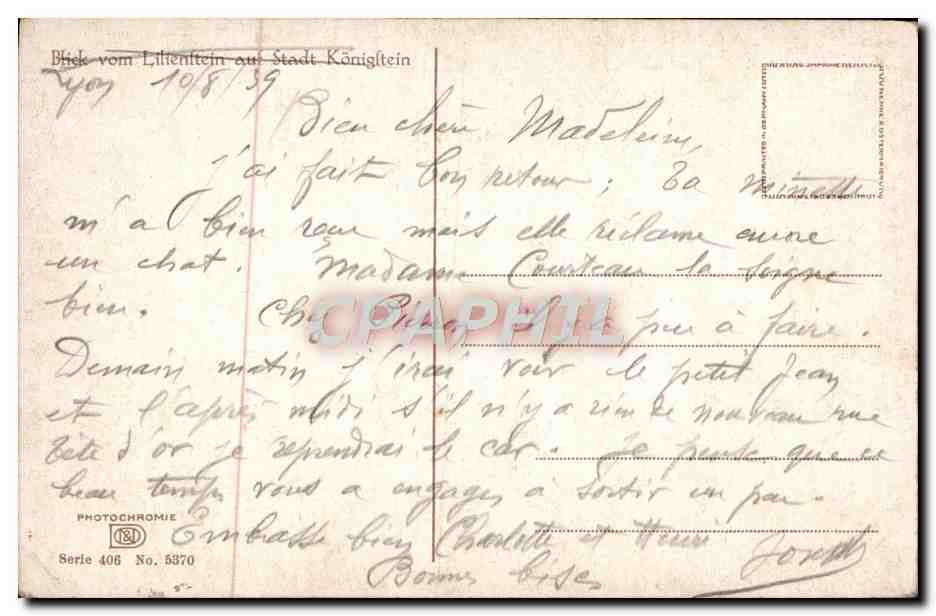 Blick vom Lilienstein auf Stadt Königstein
Lyon 10/8/39
Bien chère Madeleine,
j'ai fait bon retour ; Ta minette
m'a bien reçu mais elle réclame encore
un chat. Madame Courteau la soigne
bien. Chez il y a peu à faire.
Demain matin j'irai voir le petit Jean
et l'après midi s'il n'y a rien de nouveau rue
Tête d'or je reprendrai le car. Je pense que ce
beau temps vous a engagés à sortir un peu.
Embrasse bien Charlotte et Henri
Bonnes bises
Joseph
PHOTOCHROMIE
Serie 406 No. 5370
CPAPHIL